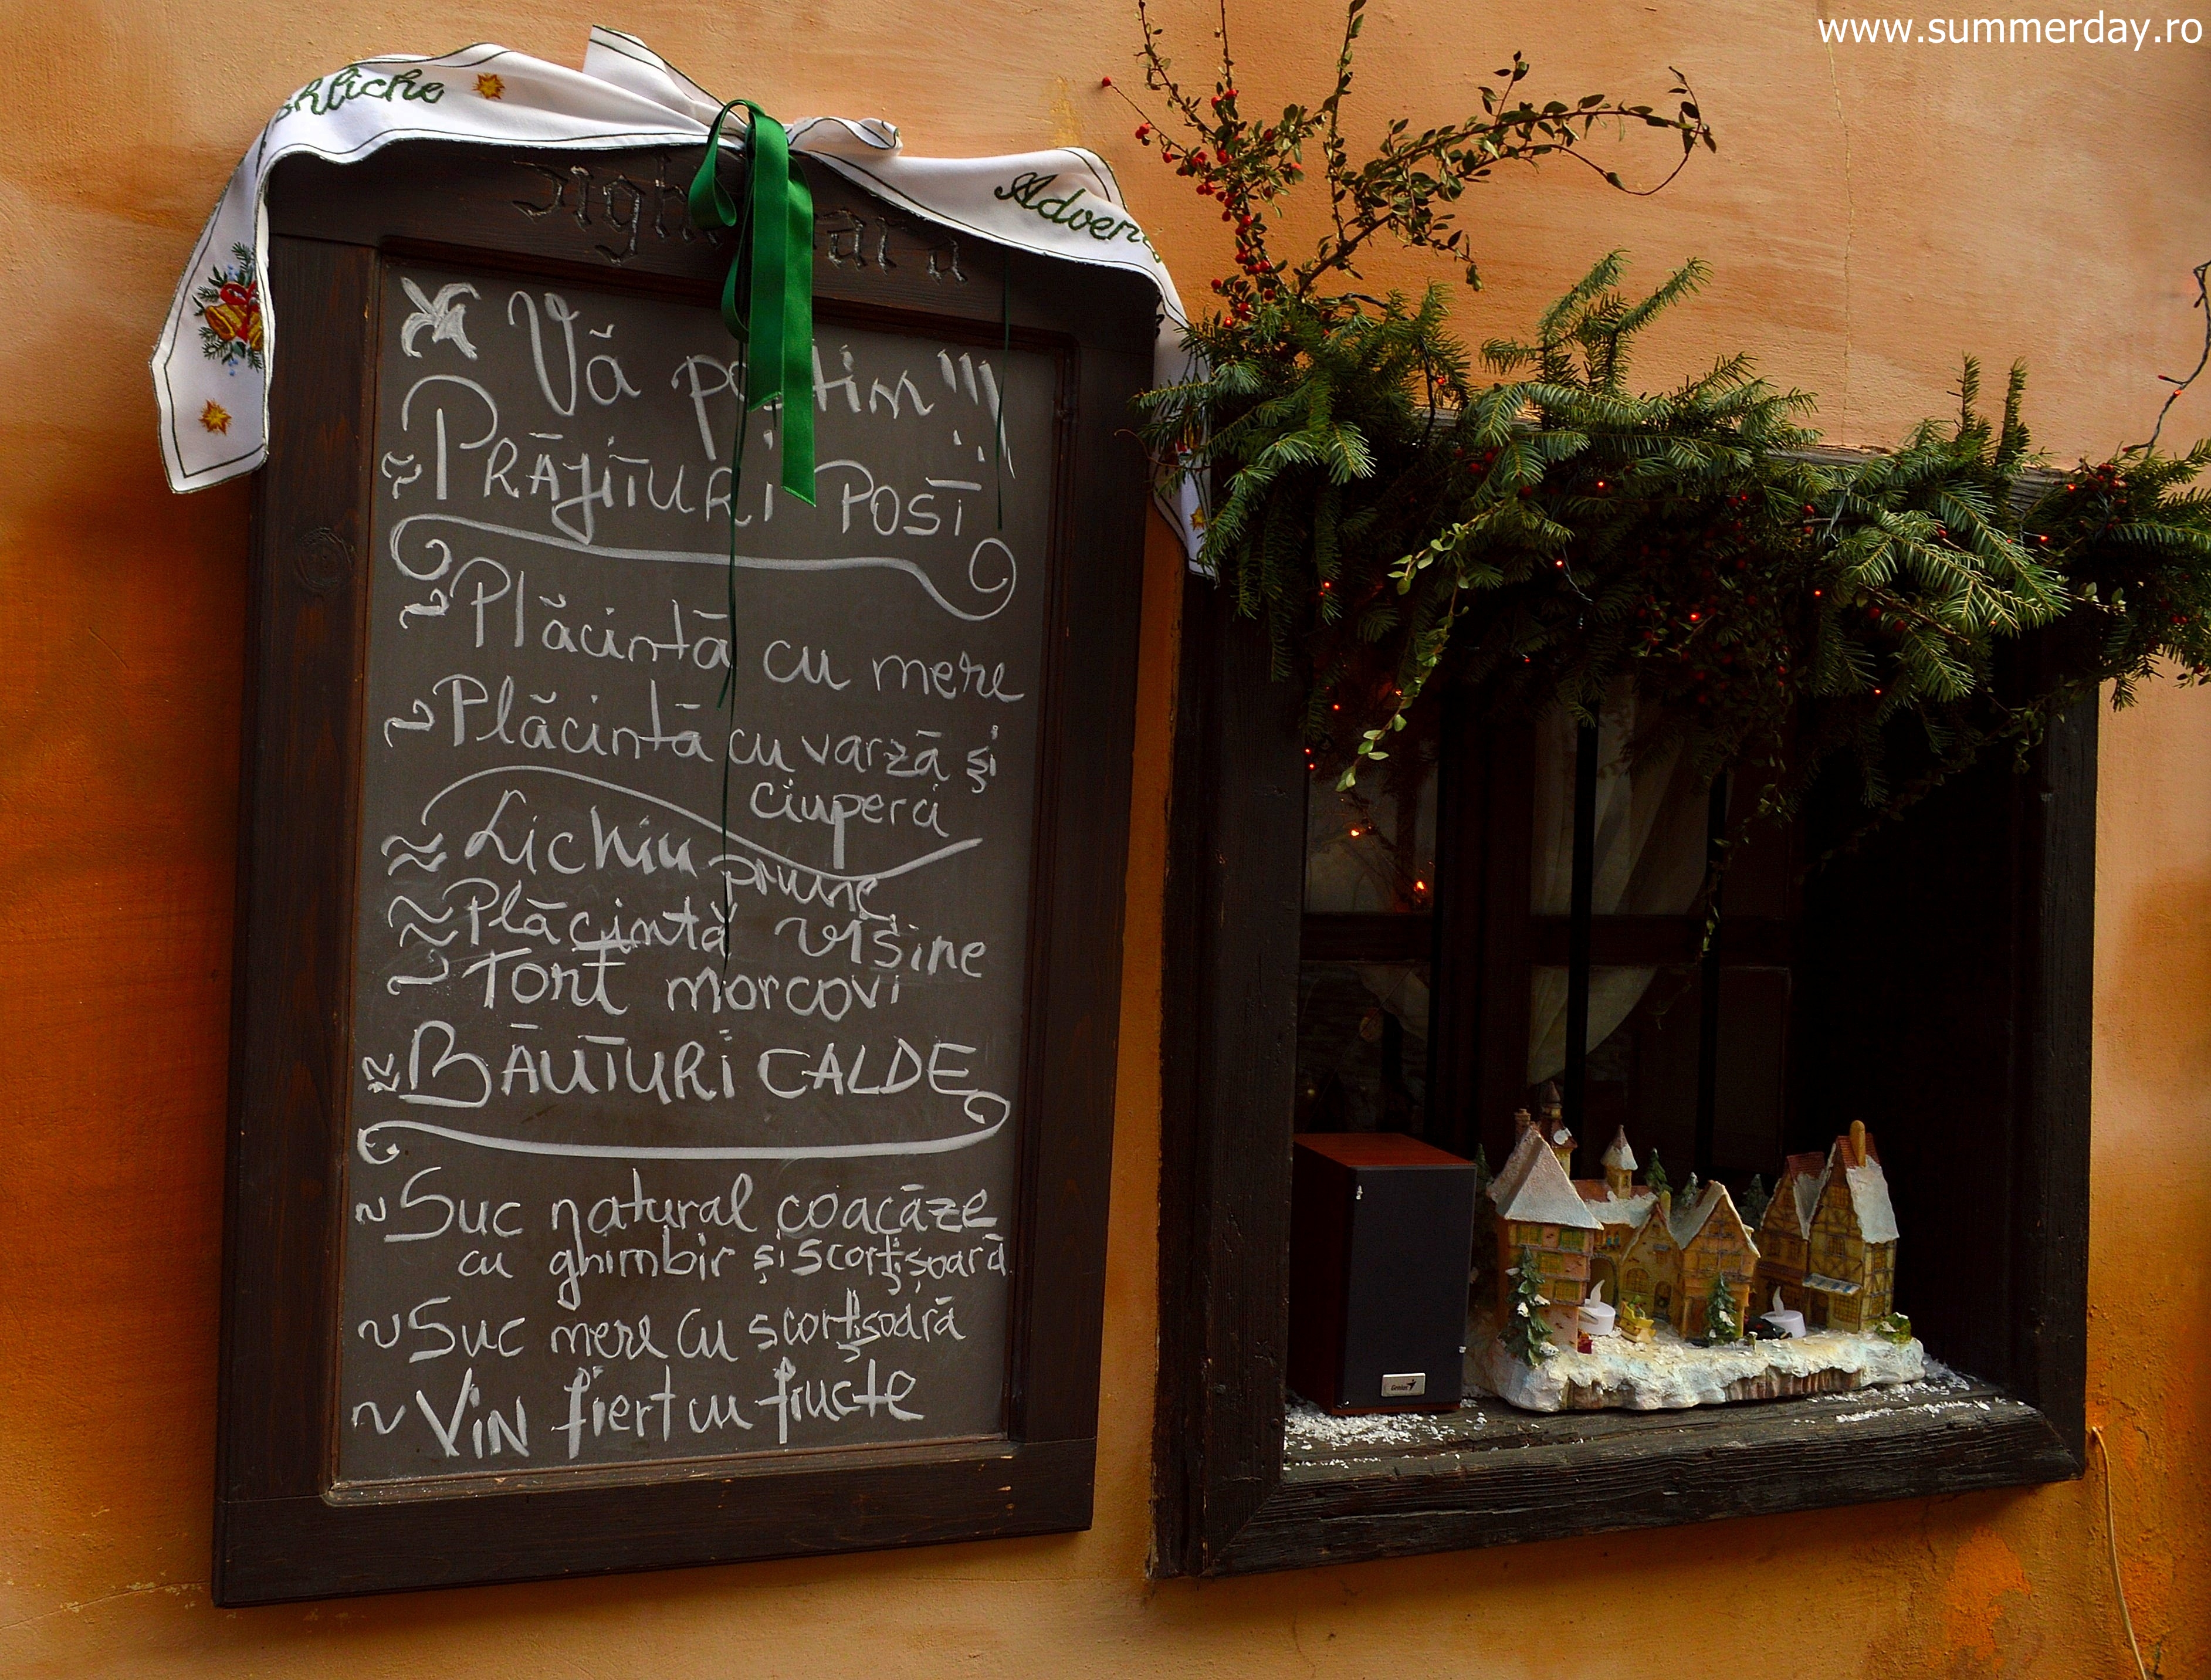 www.summerday.ro
Adven
Vă
PRĂJITURI POST
Plăcintă cu mere
Plăcintă cu varză și
ciuperci
Lichiu prune
Plăcintă vișine
Tort morcovi
BĂUTURI CALDE
Suc natural coacăze
cu ghimbir și scorțișoară
Suc mere cu scorțișoară
ViN fiert cu fructe
Genius